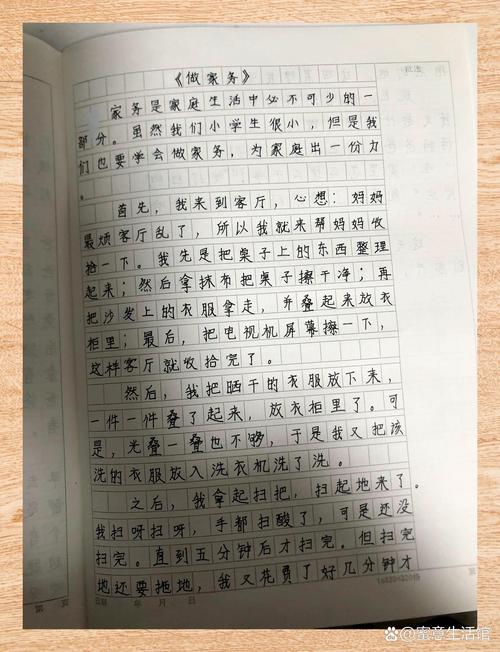 《做家务》
家务是家庭生活中必不可少的一
部分。虽然我们小学生很小，但是我
们也要学会做家务，为家庭出一份力
。
首先，我来到客厅，心想：妈妈
最烦客厅乱了，所以我就来帮妈妈收
拾一下。我先是把桌子上的东西整理
起来；然后拿抹布把桌子擦干净；再
把沙发上的衣服拿走，并叠起来放衣
柜里；最后，把电视机屏幕擦一下，
这样客厅就收拾完了。
然后，我把晒干的衣服放下来，
一件一件叠了起来，放衣柜里了。可
是，光叠一叠也不够，于是我又把该
洗的衣服放入洗衣机洗了洗。
之后，我拿起扫把，扫起地来了。
我扫呀扫呀，手都扫酸了，可是还没
扫完。直到五分钟后才扫完。但扫完
地还要拖地，我又花费了好几分钟才
年 月 日
第 页
蜜意生活馆